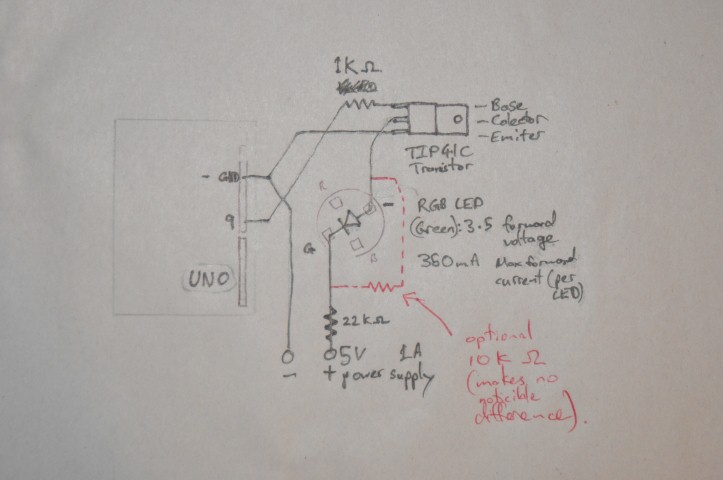 1K Ω
Base
Colector
Emiter
TIP41C
Tranistor
- GND
9
UNO
R
G
B
-
RGB LED
(Green): 3.5 forward
voltage
360mA Max forward
current (per
LED)
22KΩ
5V 1A
- + power supply
optional
10 K Ω
(makes no
noticible
difference).